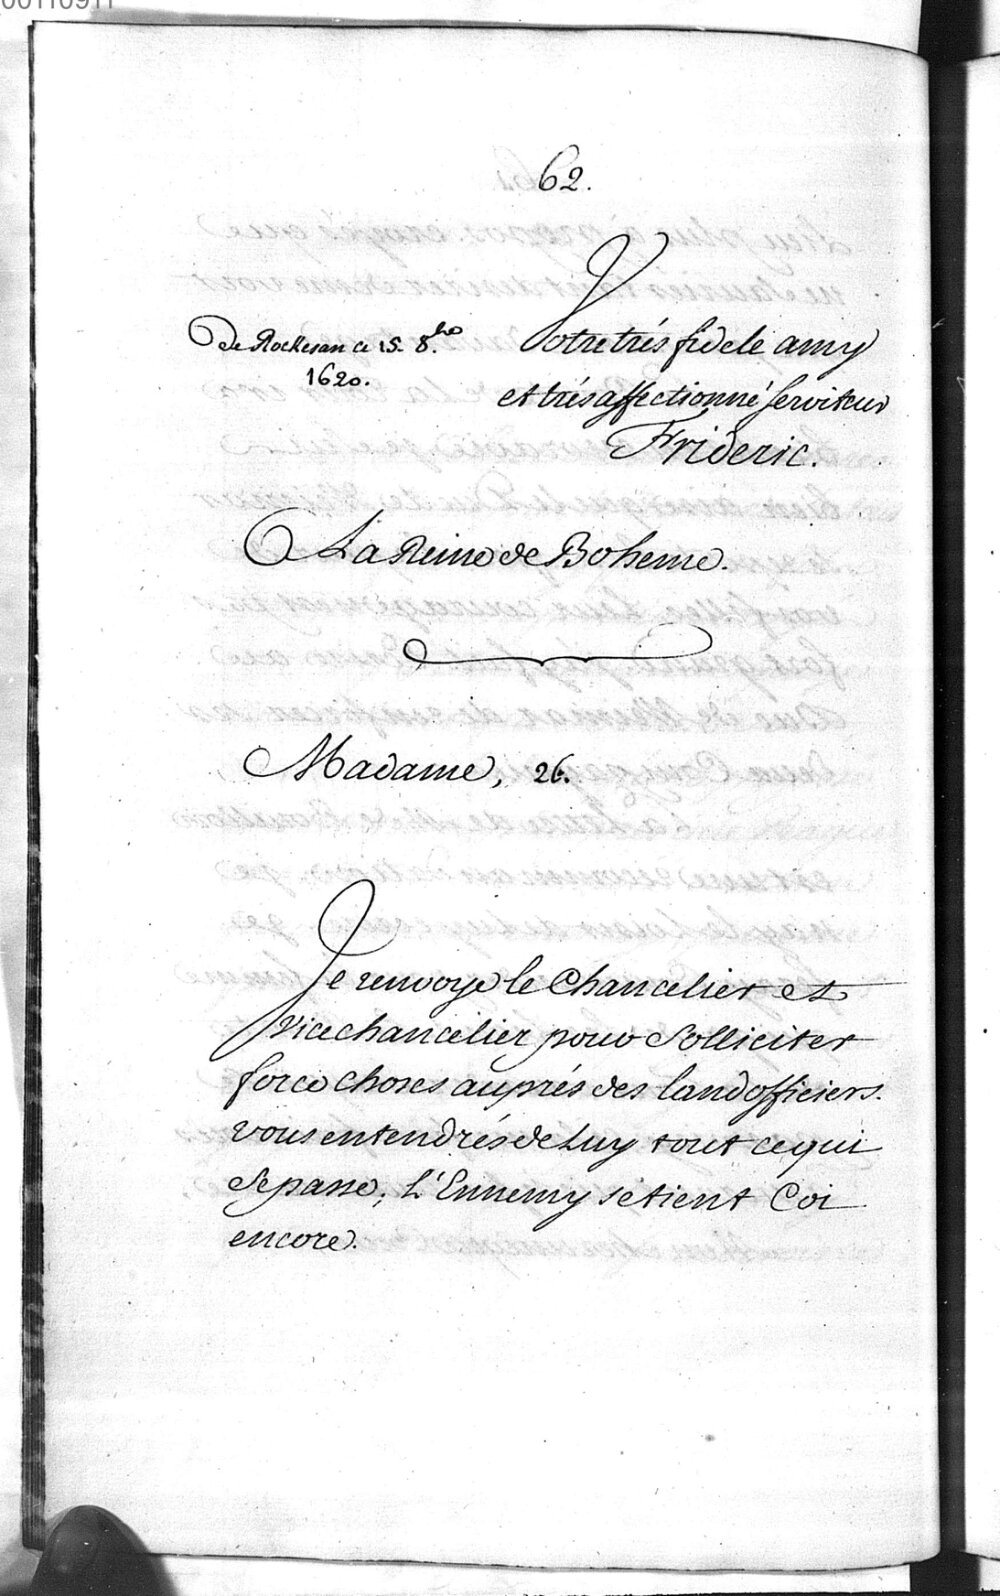 00110911
62.
Votre trés fidele amy
De Rockesan ce 15. 8.bre
1620.
et trés affectionné serviteur
Frideric.
A La Reine de Boheme.
Madame, 26.
Je renvoye le Chancelier et
Vicechancelier pour Solliciter
force choses auprés des landofficiers.
vous entendrés de Luy tout ce qui
Se passe, L'Ennemy se tient Coi
encore.